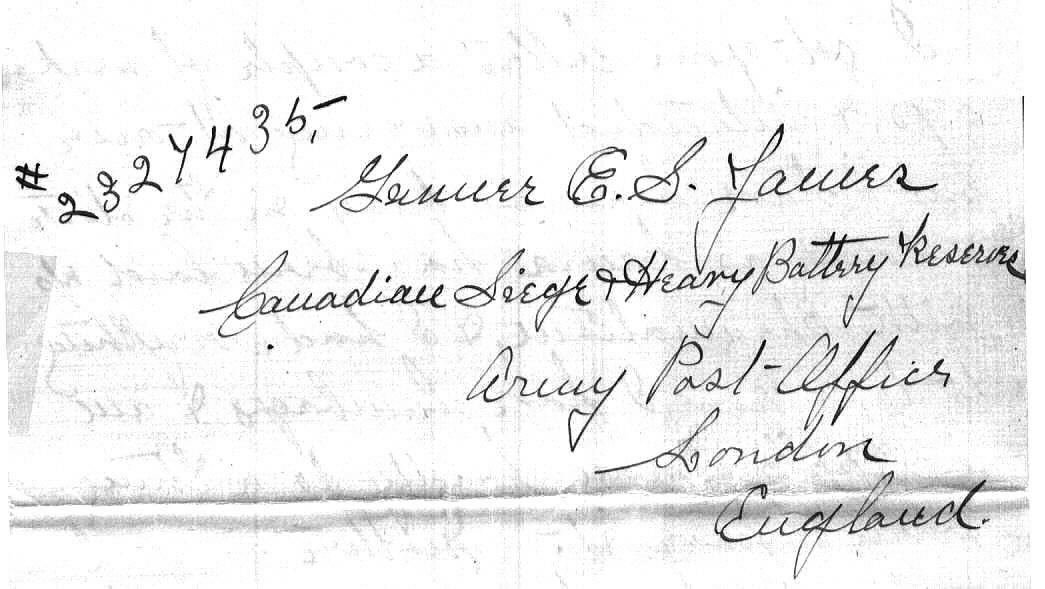 # 2327435,-
Gunner E. S. James
Canadian Siege & Heavy Battery Reserves
Army Post-Office
London
England.